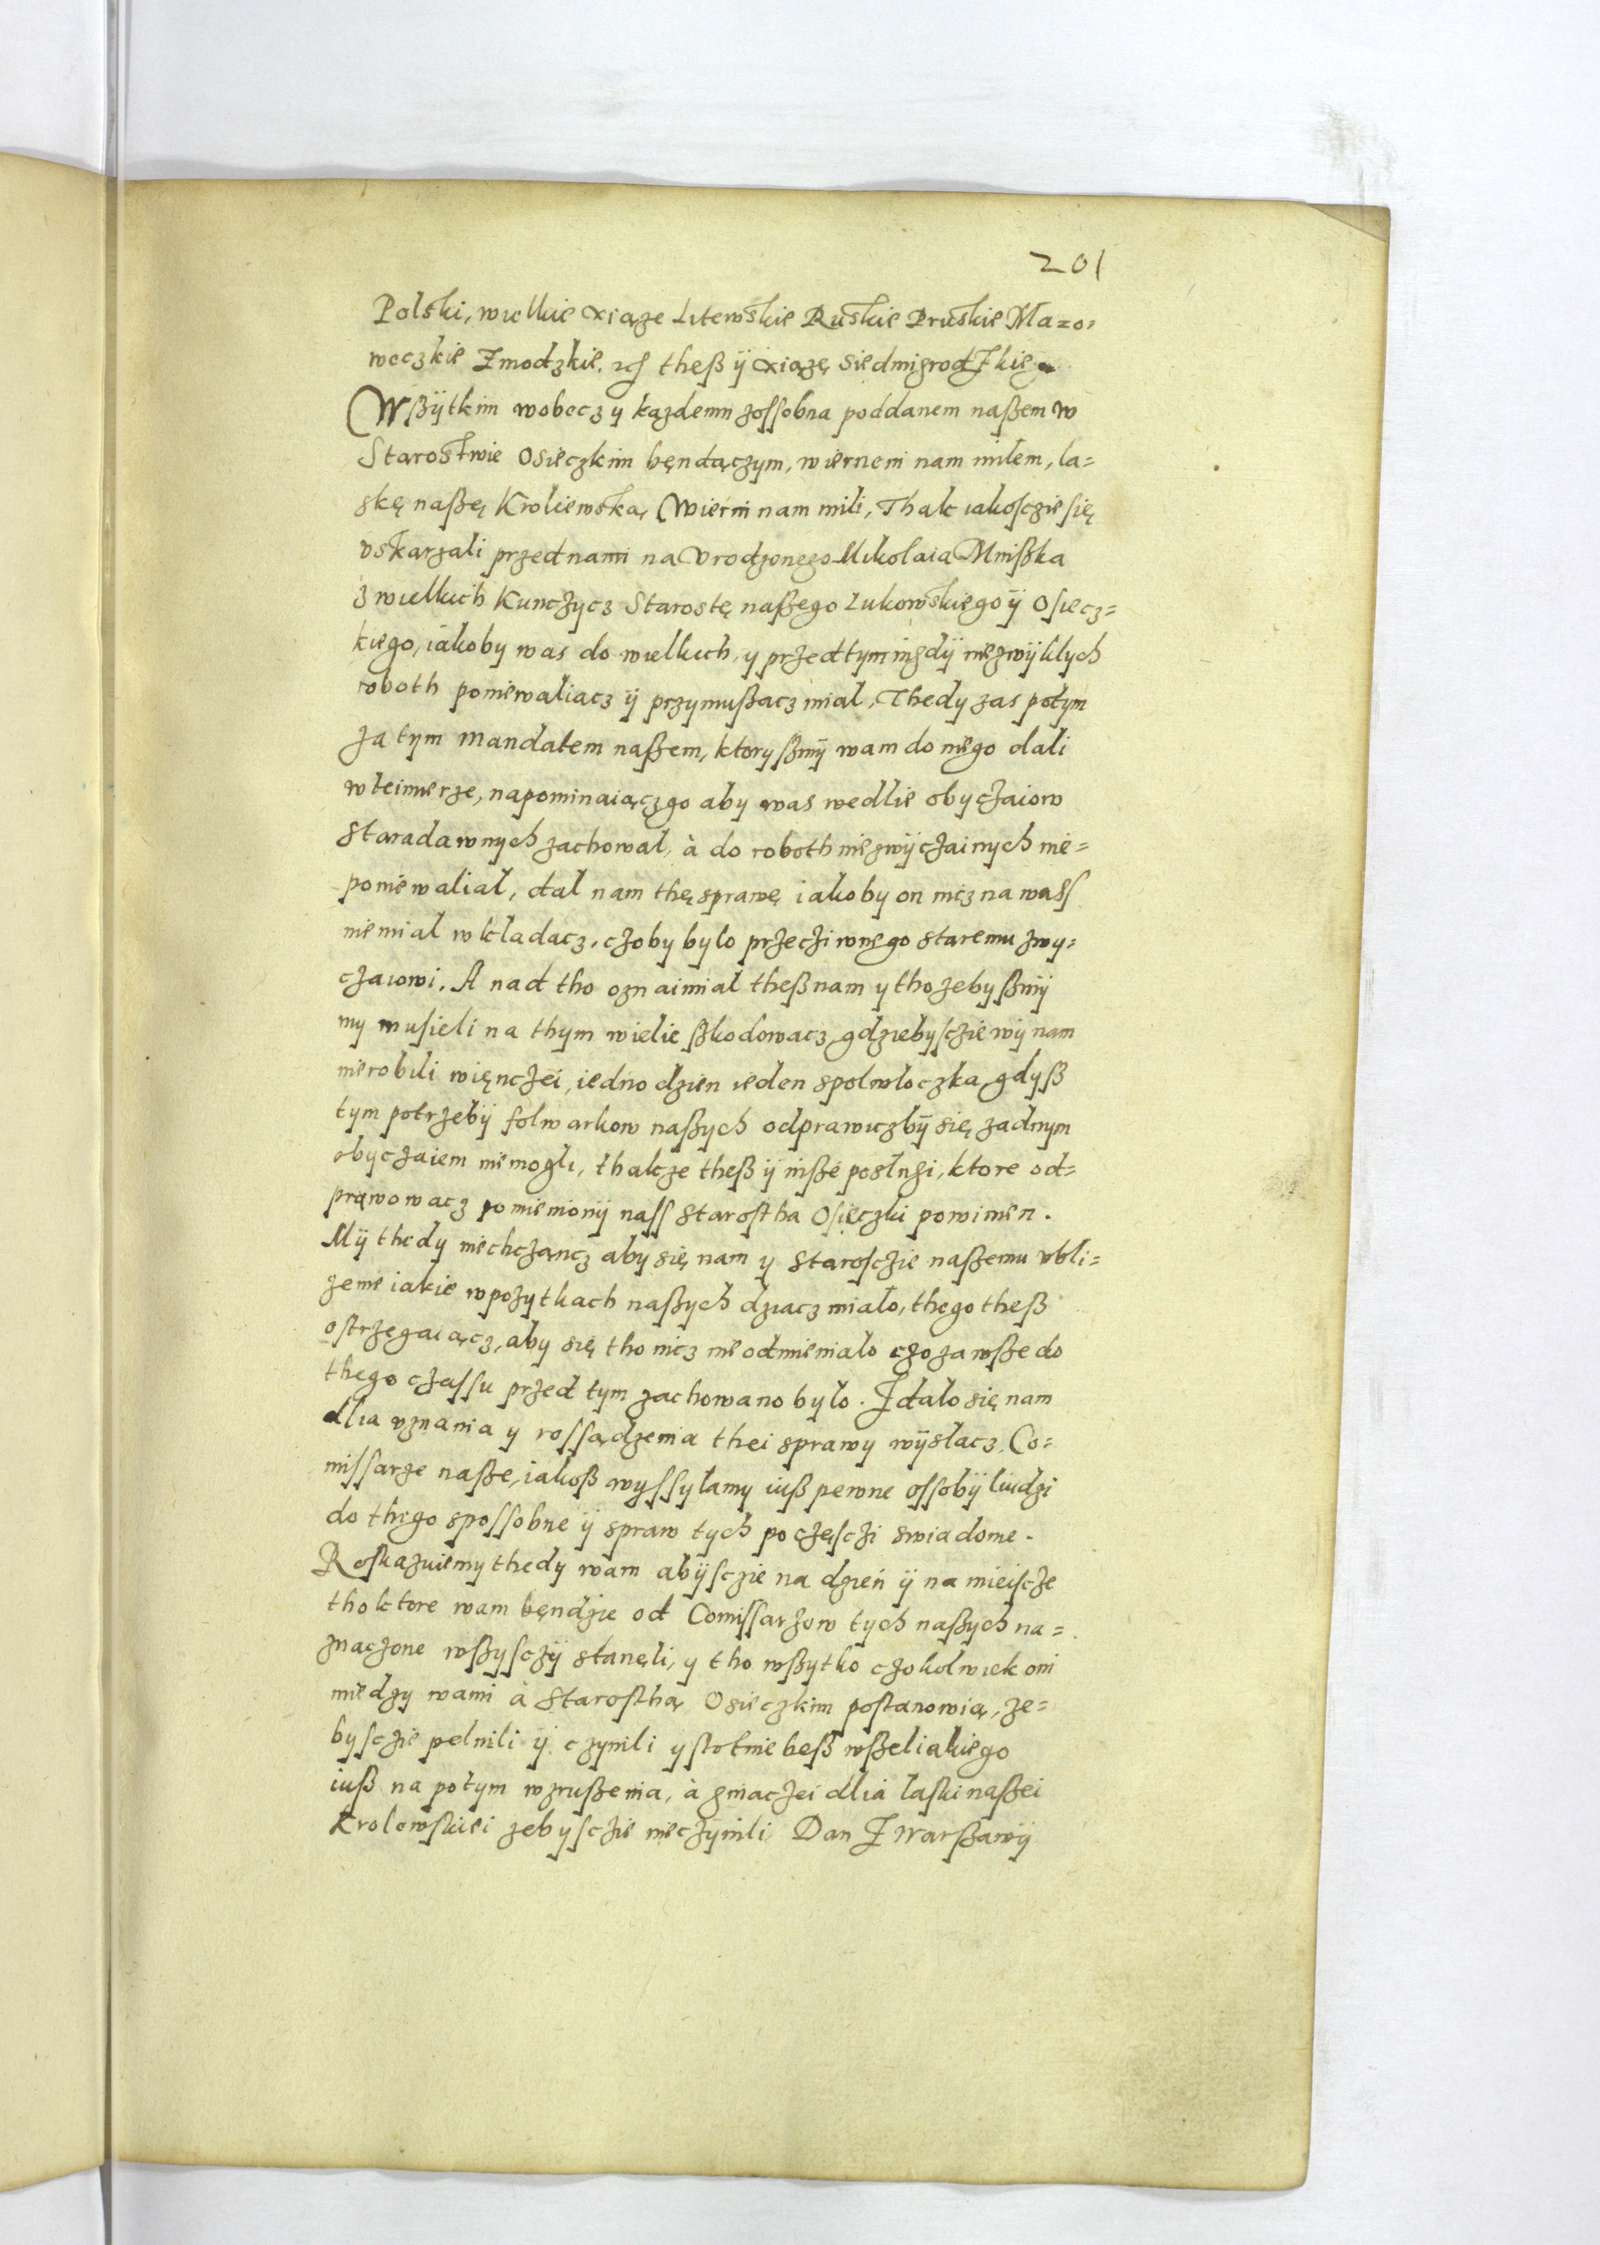 201
Polski, wielkie xiąze Litewskie Ruskie Pruskie Mazo,
weczkie Zmodzkie. etc theß ÿ xiązę siedmigrodZkie
Wßÿtkim wobecz y kazdemu zossobna poddanem naßem w
Starostwie Osieczkim będączym, wiernem nam miłem, la=
skę naßę Kroliewską Wierni nam mili, Thak iakosczie się
vskarzali przed nami na vrodzonego Mikolaia Mnißka
z wielkich Kunczycz Starostę naßego Lukowskiego ÿ Osiecz=
kiego, iakoby was do wielkich, y przed tym nigdÿ niezwÿklych
roboth poniewaliacz ÿ przymußacz mial, Thedy zas potym
za tym mandatem naßem, ktoryßmÿ wam do niego dali
w teimierze, napominaiącz go aby was wedlie obyczaiow
staradawnych zachowal, à do roboth niezwÿczainych nie=
poniewalial, dal nam thę sprawę iakoby on nicz na wass
nie mial wkladacz, czoby bylo przeciwnego staremu zwy=
czaiowi, A nad tho oznaimial theß nam y tho zebyßmÿ
my musieli na thym wielie ßkodowacz gdziebysczie wÿ nam
nierobili więnczei, iedno dzien ieden spolwloczka, gdyß
tym potrzebÿ folwarkow naßych odprawiczbÿ się zadnym
obyczaiem niemogli, thakze theß ÿ inße poslugi, ktore od=
prawowacz pomienionÿ nass Starostha Osieczki powinien.
Mÿ thedy niechcząncz aby się nam y Starosczie naßemu vbli=
zenie iakie w pozytkach naßych dziacz mialo, thego theß
ostrzegaiącz, aby się tho nicz nie odmienialo czo zawße do
thego czassu przed tym zachowano bylo. Zdalo się nam
dlia vznania y rossądzenia thei sprawy wÿslacz Co=
missarze naße, iakoß wyssylamy iuß pewne ossobÿ liudzi
do thego spossobne ÿ spraw tych po częsczi swiadome.
Roskazuiemy thedy wam abÿsczie na dzień ÿ na mieiscze
tho ktore wam bęndzie od Comissarzow tych naßych na=
znaczone wßysczÿ stanęli, y tho wßytko czokolwiek oni
miedzy wami à Starosthą Osieczkim postanowią, ze=
bysczie pelnili ÿ czynili ystotnie beß wßeliakiego
iuß na potym wzrußenia, à ginaczei dlia laski naßei
Krolewskiei zebysczie nieczÿnili. Dan Z Warßawÿ